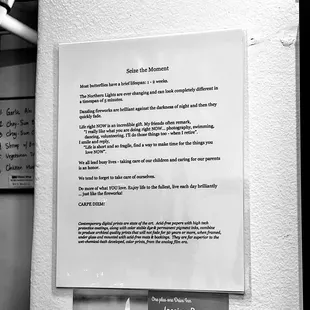 Seize the Moment
Most butterflies have a brief lifespan: 2 - 6 weeks.
The Northern Lights are ever changing and can look completely different in
a timespan of 5 minutes.
Dazzling fireworks are brilliant against the darkness of night and then they
quickly fade.
Life right NOW is an incredible gift. My friends often remark,
"I really like what you are doing right NOW... photography, swimming,
dancing, volunteering. I'll do those things too - when I retire".
I smile and reply,
"Life is short and so fragile, find a way to make time for the things you
love NOW".
We all lead busy lives - taking care of our children and caring for our parents
is an honor.
We tend to forget to take care of ourselves.
Do more of what YOU love. Enjoy life to the fullest, live each day brilliantly
... just like the fireworks!
CARPE DIEM!
Contemporary digital prints are state of the art. Acid-free papers with high tech
protective coatings, along with color stable dye & permanent pigment inks, combine
to produce archival quality prints that will not fade for 50 years or more, when framed,
under glass and mounted with acid-free mats & backings. They are far superior to the
wet-chemical-bath developed, color prints, from the analog film era.
One plus one Dates Inn